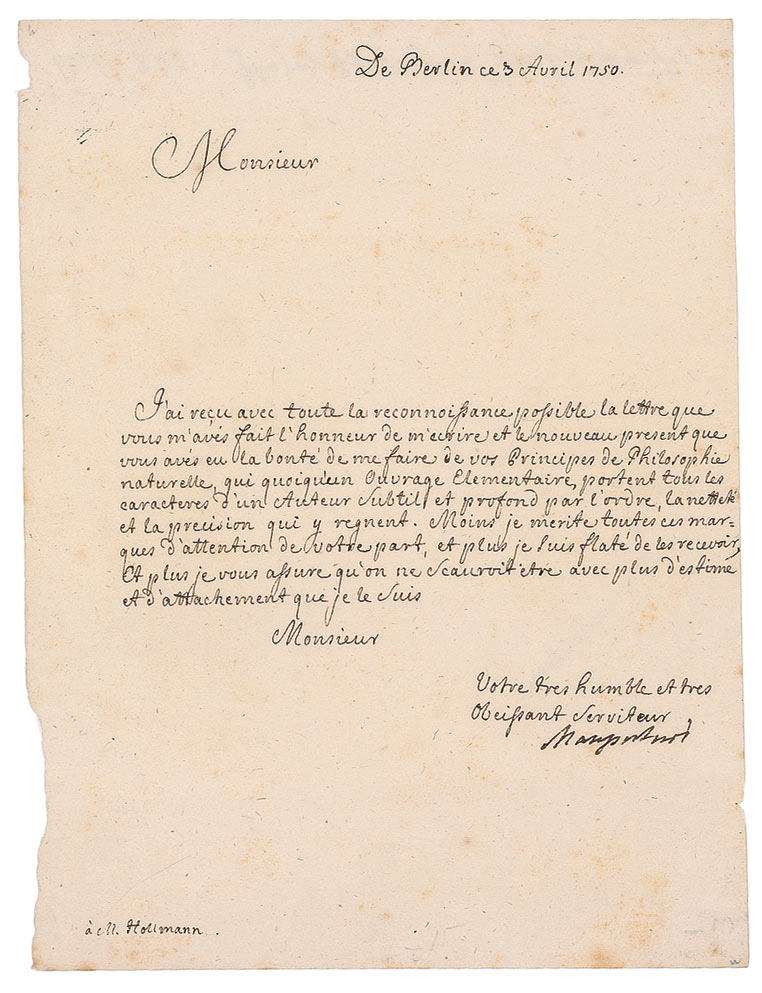 De Berlin ce 3 Avril 1750.
Monsieur
J'ai reçu avec toute la reconnoissance possible la lettre que
vous m'avés fait l'honneur de m'ecrire et le nouveau present que
vous avés eu la bonté de me faire de vos Principes de Philosophie
naturelle, qui quoiqu'un Ouvrage Elementaire, portent tous les
caracteres d'un Auteur Subtil, et profond par l'ordre, la netteté
et la precision qui y regnent. Moins je merite toutes ces mar=
ques d'attention de votre part, et plus je suis flaté de les recevoir,
Et plus je vous assure qu'on ne scauroit etre avec plus d'estime
et d'attachement que je le suis
Monsieur
Votre tres humble et tres
Obeissant Serviteur,
Maupertuis
à M. Hollmann.